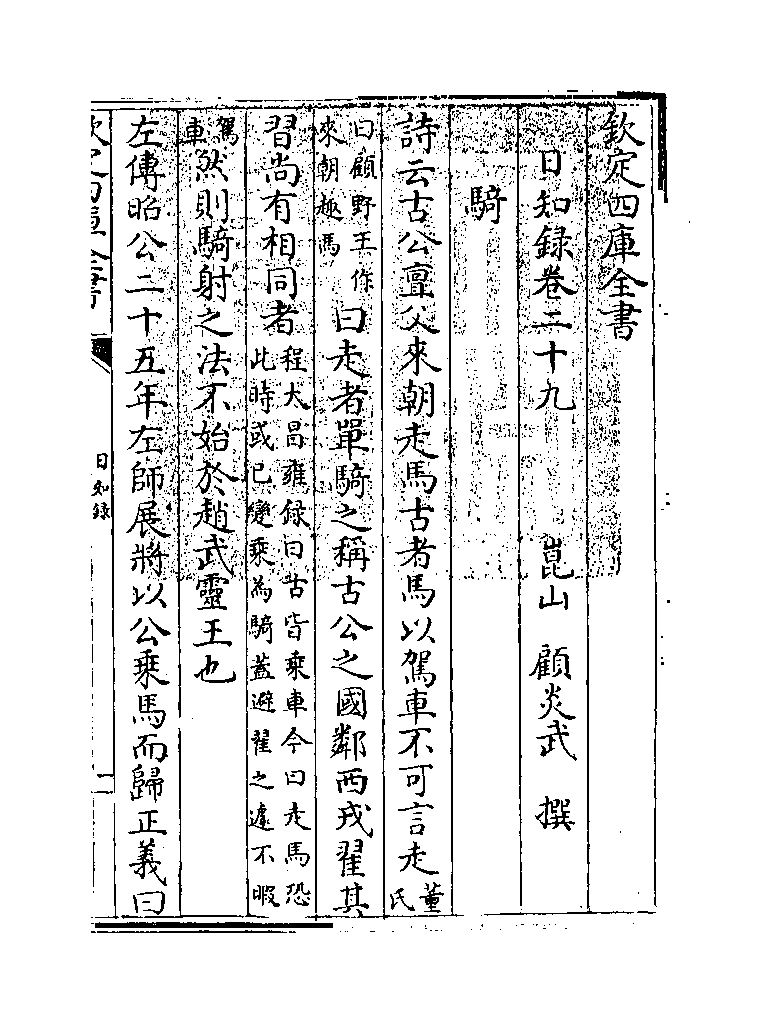 欽定四庫全書
日知録卷二十九
崑山 顧炎武 撰
騎
詩云古公亶父來朝走馬古者馬以駕車不可言走董氏
曰顧野王作來朝趣馬曰走者單騎之稱古公之國鄰西戎翟其
習尚有相同者程大昌雍録曰古皆乘車今曰走馬恐此時或已變乘為騎蓋避翟之遽不暇
駕車然則騎射之法不始於趙武靈王也
左傳昭公二十五年左師展將以公乘馬而歸正義曰
日知録